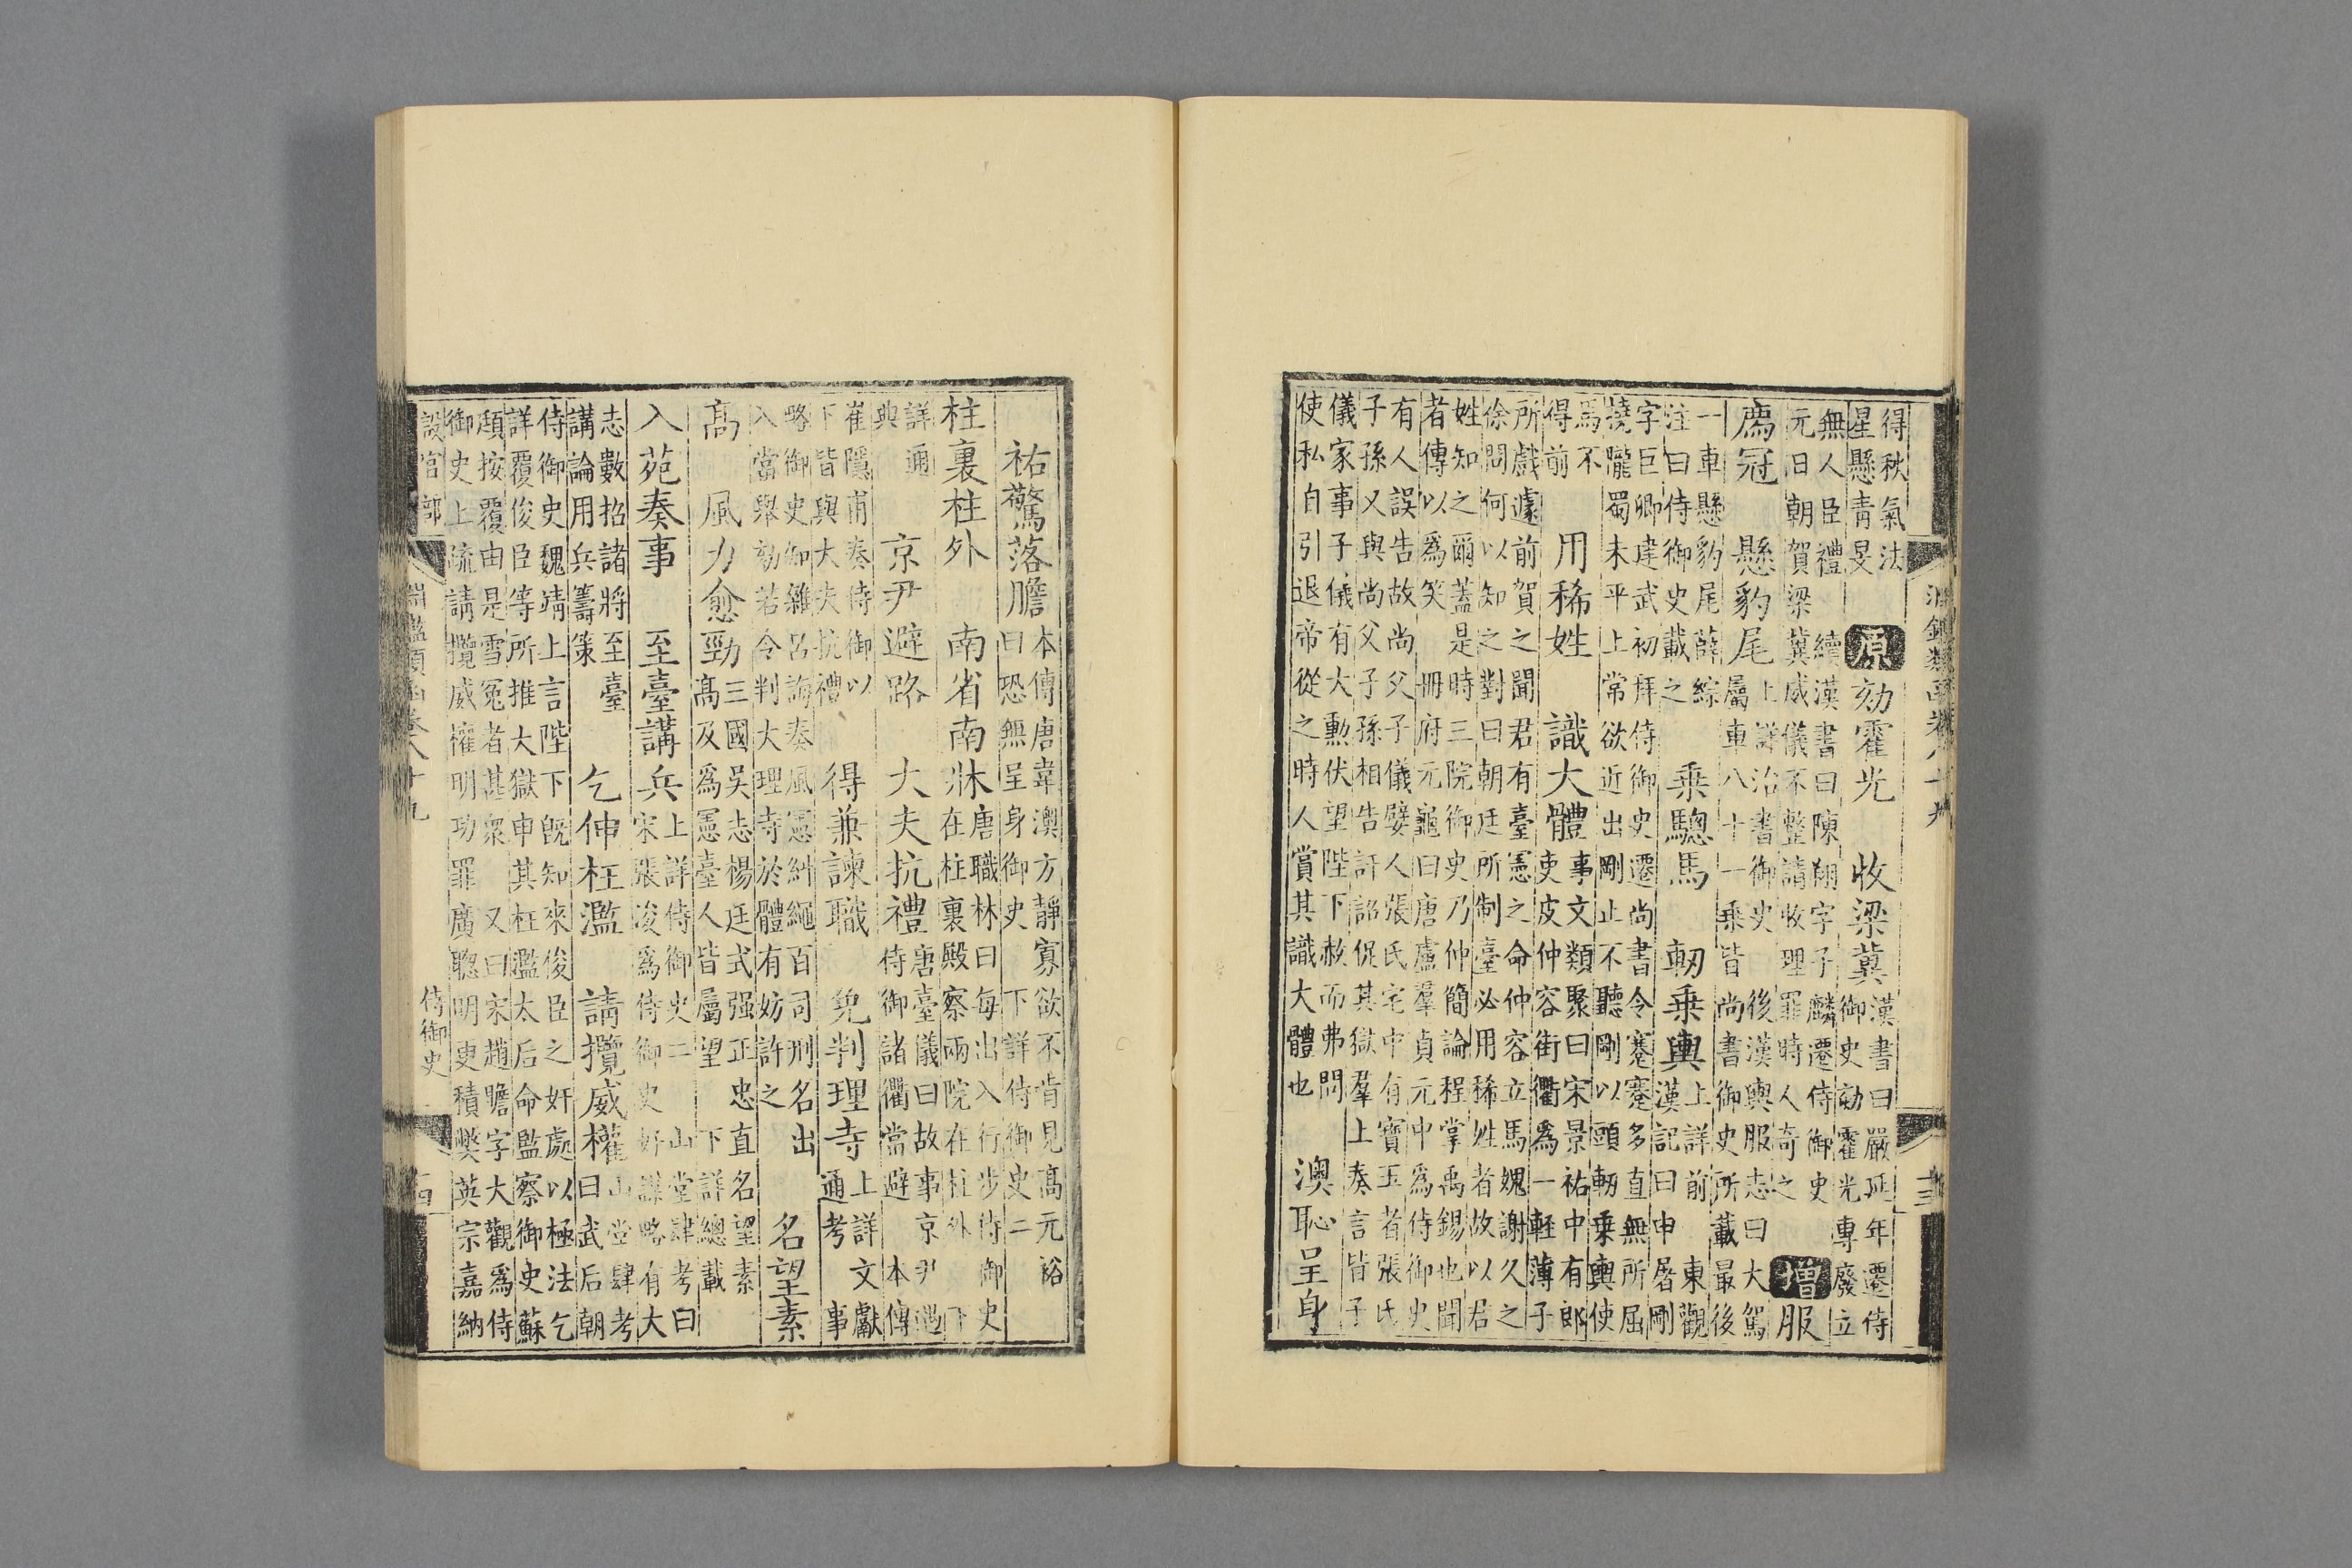 淵鑑類函卷八十九 十三
得秋氣法
星懸青旻
原 劾霍光 收梁冀
漢書曰嚴延年遷侍
御史劾霍光專廢立
無人臣禮 續漢書曰陳翔字子麟遷侍御史
元日朝賀梁冀威儀不整請收理罪時人奇之
增 服
廌冠 懸豹尾
上詳治書御史 後漢輿服志曰大駕
屬車八十一乘皆尚書御史所載最後
一車懸豹尾薛綜
注曰侍御史載之
乗驄馬 軔乗輿
上詳前 東觀
漢記曰申屠剛
字巨卿建武初拜侍御史遷尚書令蹇蹇多直無所屈
撓隴蜀未平上常欲近出剛止不聽剛以頭軔乗輿使
馬不
得前
用稀姓 識大體
事文類聚曰宋景祐中有郎
吏皮仲容街衢為一輕薄子
所戲遽前賀之聞君有臺憲之命仲容立馬媿謝久之
徐問何以知之對曰朝廷所制臺必用稀姓者故以君
姓知之爾蓋是時三院御史乃仲簡論程掌禹錫也聞
者傳以為笑 冊府元龜曰唐盧羣貞元中為侍御史
有人誤告故尚父子儀嬖人張氏宅中有寶玉者張氏
子孫又與尚父子孫相告訐詔促其獄羣上奏言皆子
儀家事子儀有大勳伏望陛下赦而弗問
使私自引退帝從之時人賞其識大體也
澳恥呈身
祐驚落膽
本傳唐韋澳方靜寡欲不肯見高元裕
曰恐無呈身御史 下詳侍御史二
柱裏柱外 南省南牀
唐職林曰每出入行步侍御史
在柱裏殿察兩院在柱外 下
詳通
典
京尹避路 大夫抗禮
唐臺儀曰故事京尹遇
侍御諸衢當避 本傳
崔隱甫奏侍御以
下皆與大夫抗禮
得兼諫職 免判理寺
上詳文獻
通考 事
略御史知雜呂誨奏風憲糾繩百司刑名出
入當舉劾若令判大理寺於體有妨許之
名望素
高 風力愈勁
三國吳志楊廷式强正忠直名望素
高及為憲臺人皆屬望 下詳總載
入苑奏事 至臺講兵
上詳侍御史二 山堂肆考曰
宋張浚為侍御史好謀略有大
志數招諸將至臺
講論用兵籌策
乞伸枉濫 請攬威權
山堂肆考
曰武后朝
侍御史魏靖上言陛下旣知來俊臣之奸處以極法乞
詳覆俊臣等所推大獄申其枉濫太后命監察御史蘇
頲按覆由是雪冤者甚衆 又曰宋趙瞻字大觀為侍
御史上疏請攬威權明功罪廣聰明更積獘英宗嘉納
設官部 淵鑑類函卷八十九 侍御史 十四